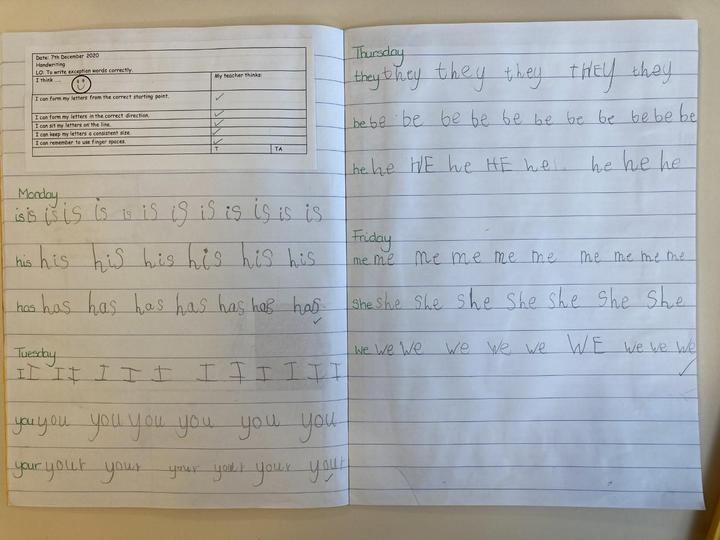 Date: 7th December 2020
Handwriting
LO: To write exception words correctly.
I think ... My teacher thinks:
I can form my letters from the correct starting point.
I can form my letters in the correct direction.
I can sit my letters on the line.
I can keep my letters a consistent size.
I can remember to use finger spaces.
T TA
Monday
is is is is is is is is is is is is
his his his his his his his
has has has has has has has has
Tuesday
I I I I I I I I I I I I I
you you you you you you you
your your your your your your your
Thursday
they they they they tHEY they
be be be be be be be be be be be be
he he HE he HE he he he he
Friday
me me me me me me me me me me
she she she she She she She She
we we we we we we WE we we we